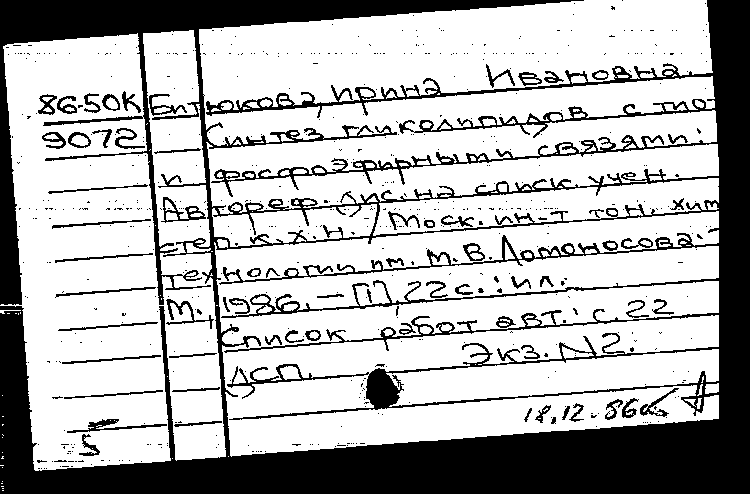 86-50К Битюкова, Ирина Ивановна.
9072 Синтез гликолипидов с тио-
и фосфоэфирными связями:
Автореф. дис. на соиск. учен.
степ. к.х.н. / Моск. ин-т тон. хим.
технологии им. М.В. Ломоносова. -
М., 1986. - [1], 22 с. : ил.
Список работ авт.: с. 22
ДСП. Экз. N2.
18.12.86
5